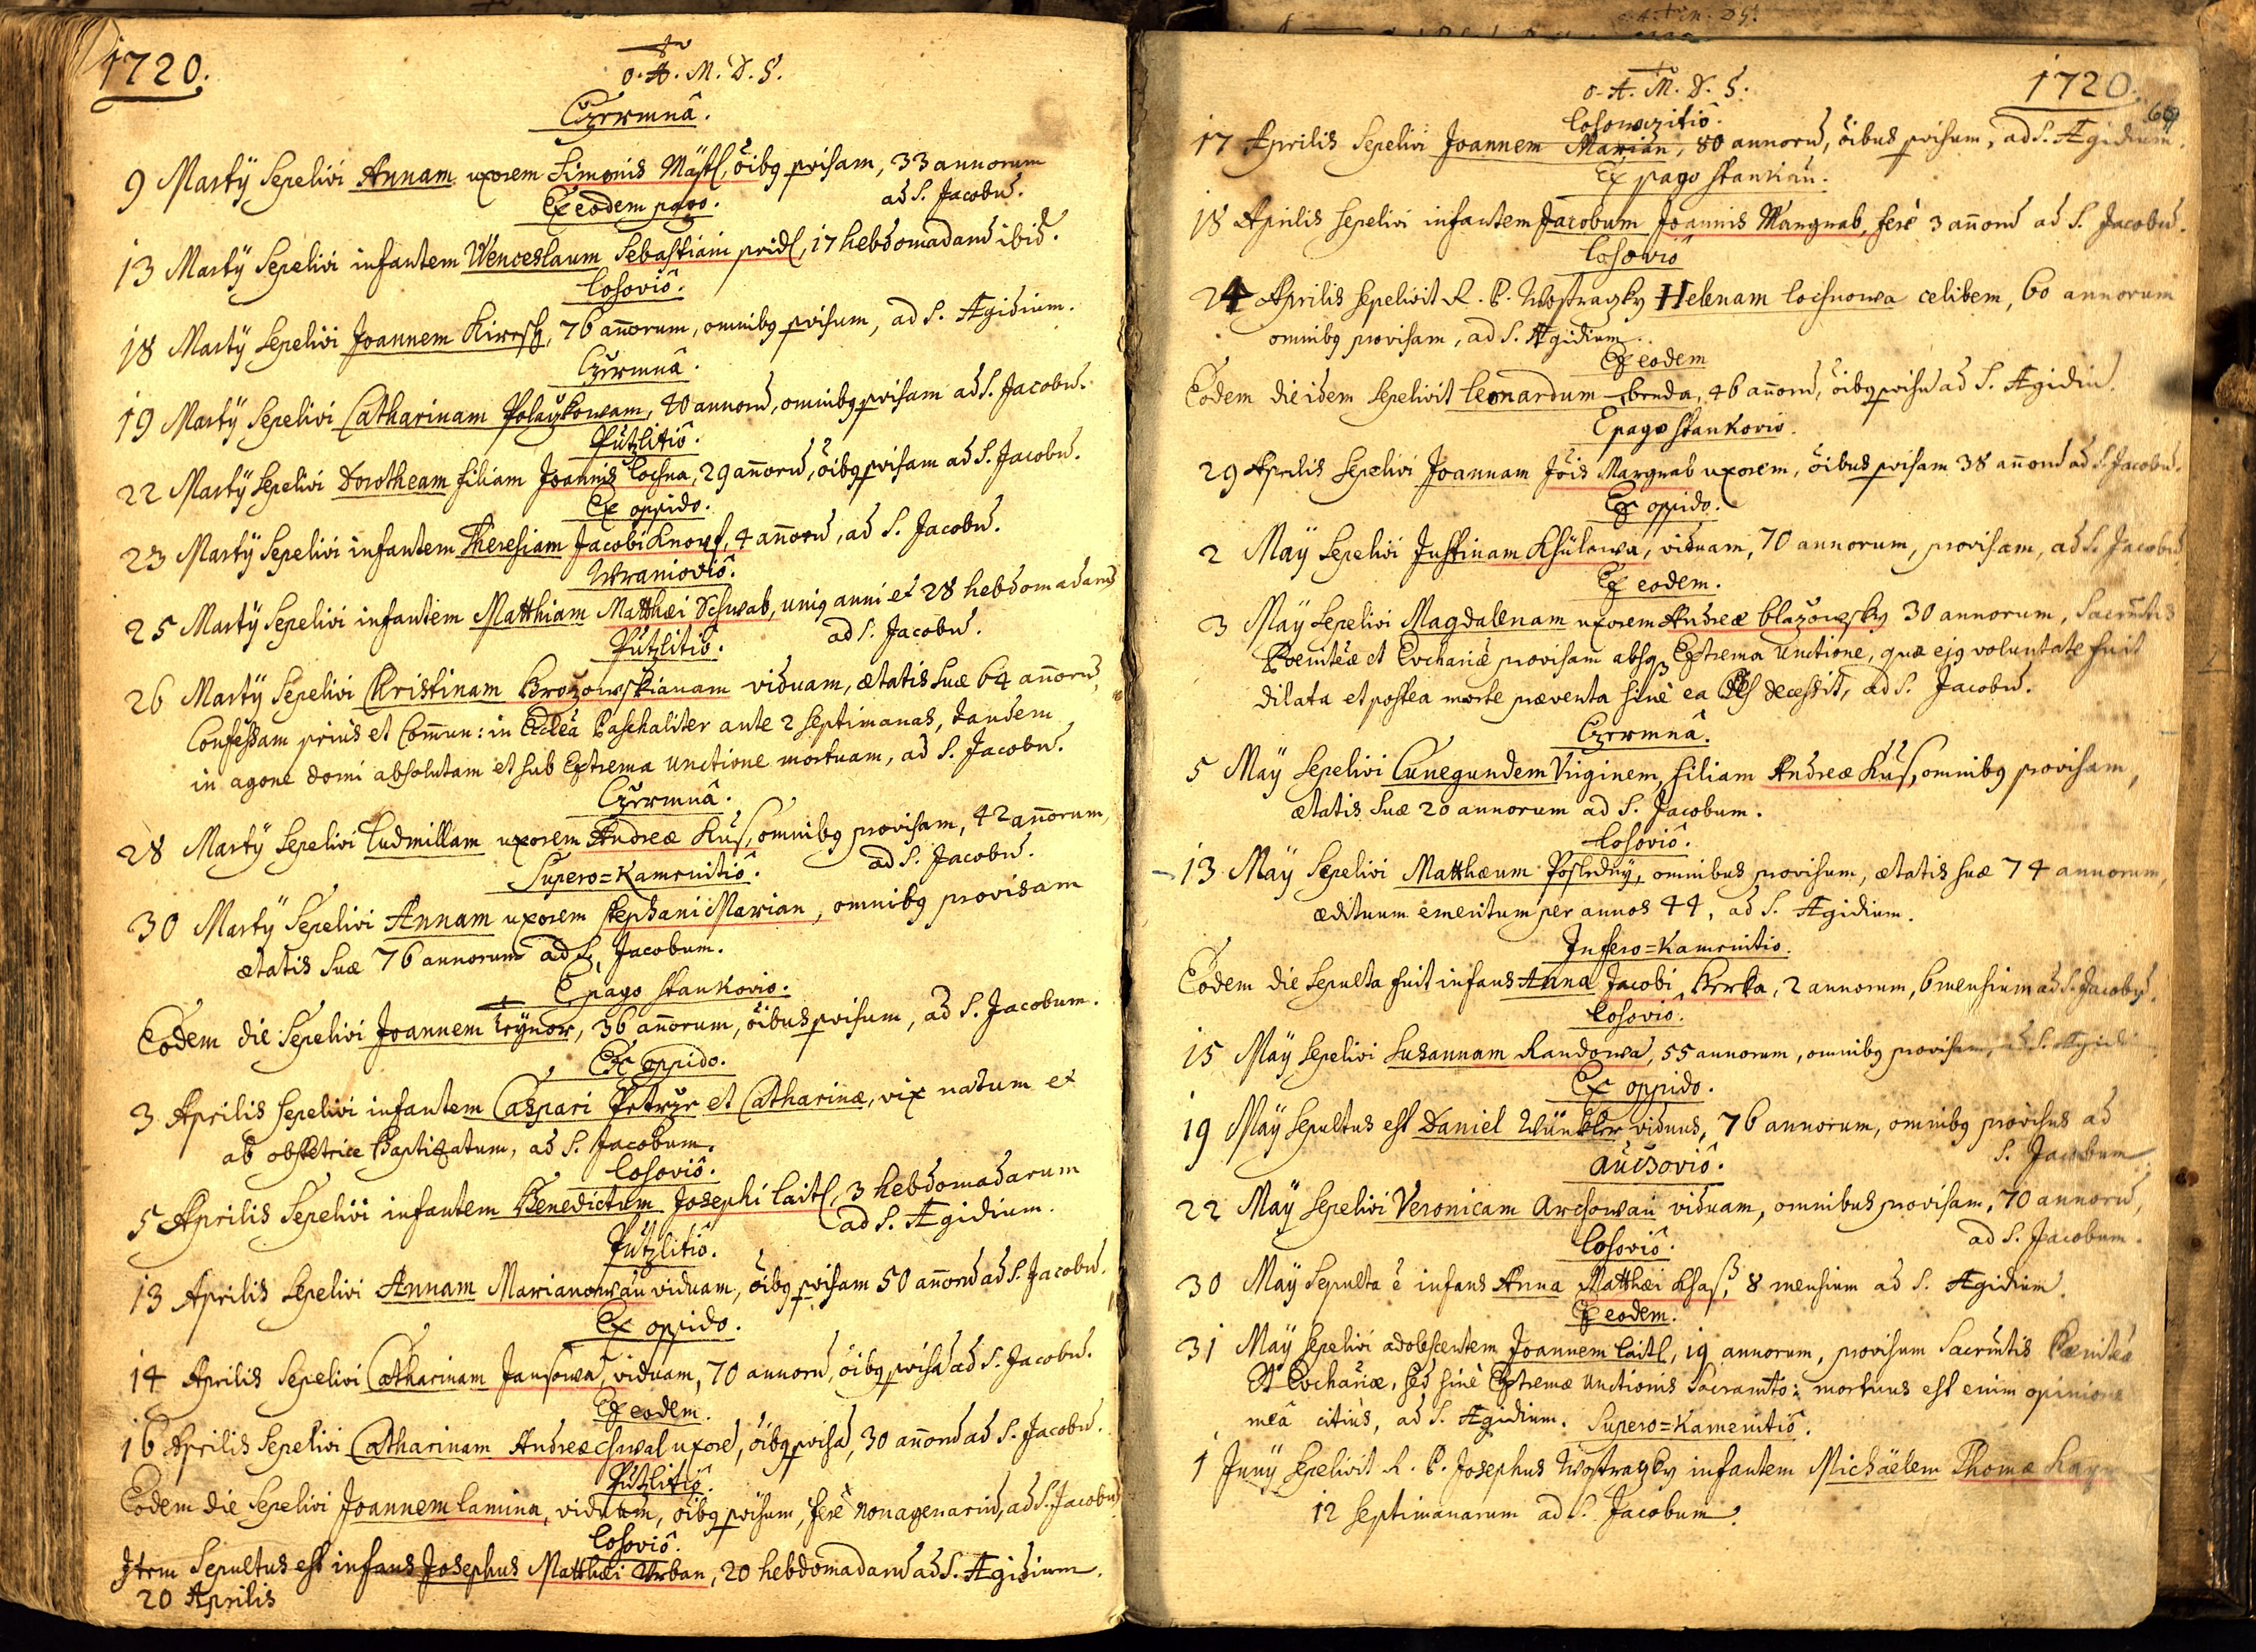 1720.
O. A. M. D. G.
Czermnâ.
9 Martÿ Sepelivi Annam uxorem Simonis Mästl, õibg pvisam, 33 annorum
Ex eodem pago. ad S. Jacobũ.
13 Martÿ Sepelivi infantem Wenceslaum Sebastiani pridl, 17 hebdomadarũ ibid.
Losoviô.
18 Martÿ Sepelivi Joannem Kiresch, 76 añorum, omnibg pvisum, ad S. Ægidium.
Czermnâ.
19 Martÿ Sepelivi Catharinam Polaczkowam, 40 annorũ, omnibg pvisam ad S. Jacobũ.
Pützlitiô.
22 Martÿ Sepelivi Dorotheam filiam Joannis Lochna, 29 añorũ, õibg pvisam ad S. Jacobũ.
Ex oppido.
23 Martÿ Sepelivi infantem Theresiam Jacobi Knopf, 4 añorũ, ad S. Jacobũ.
Wranioviô.
25 Martÿ Sepelivi infantem Matthiam Matthæi Schwab, unig anni et 28 hebdomadarũ
Pützlitiô. ad S. Jacobũ.
26 Martÿ Sepelivi Christinam Brozowskianam viduam, ætatis suæ 64 añorũ,
Confessam priùs et Com̃un: in Ecclêa Paschaliter ante 2 septimanas, tandem
in agone domi absolutam et sub Extrema Unctione mortuam, ad S. Jacobũ.
Czermnâ.
28 Martÿ Sepelivi Ludmillam uxorem Andreæ Kus, omnibg provisam, 42 añorum,
Supero=Kamenitiô. ad S. Jacobũ.
30 Martÿ Sepelivi Annam uxorem Stephani Marian, omnibg provisam
ætatis suæ 76 annorum ad S. Jacobum.
E pago Stankovio.
Eodem die Sepelivi Joannem Trÿnor, 36 añorum, õibus pvisum, ad S. Jacobum.
Ex oppido.
3 Aprilis sepelivi infantem Caspari Petrzr et Catharinæ, vix natum et
ab obstetrice Baptizatum, ad S. Jacobum.
Losoviô.
5 Aprilis Sepelivi infantem Benedictum Josephi Laitl, 3 hebdomadarum
ad S. Ægidium.
Pützlitiô.
13 Aprilis Sepelivi Annam Marianowãu viduam, õibg pvisam 50 añorũ ad S. Jacobũ.
Ex oppido.
14 Aprilis Sepelivi Catharinam Jansowã, viduam, 70 annorũ, õibg pvisã ad S. Jacobũ.
Ex eodem.
16 Aprilis Sepelivi Catharinam Andreæ Chwal uxorẽ, õibg pvisã, 30 añorũ ad S. Jacobũ.
Pützlitiô.
Eodem die Sepelivi Joannem Lamina, viduum, õibg pvisum, ferè nonagenariũ, ad S. Jacobũ
Losoviô.
Item Sepultus est infans Josephus Matthæi Urban, 20 hebdomadarũ ad S. Ægidium.
20 Aprilis
O. A. M. D. G.
1720.
Losowizitiô.
17 Aprilis Sepelivi Joannem Marian, 80 annorũ, õibus pvisum, ad S. Ægidium.
Ex pago Stankau.
18 Aprilis Sepelivi infantem Jacobum Joannis Margnab, ferè 3 añorũ ad S. Jacobũ.
Losovio
24 Aprilis Sepelivit R. P. Wostraczky Helenam Lochnowa celibem, 60 annorum
omnibg provisam, ad S. Ægidium.
Ex eodem
Eodem die idem Sepelivit Leonardum Brnda, 46 añorũ, õibg pvisũ ad S. Ægidiũ.
E pago Stankovio.
29 Aprilis Sepelivi Joannam Jõis Margnab uxorem, õibus pvisam 38 añorũ ad S. Jacobũ.
Ex oppido.
2 Maÿ Sepelivi Justinam Khülowã, viduam, 70 annorum, provisam, ad S. Jacobũ
Ex eodem.
3 Maÿ Sepelivi Magdalenam uxorem Andreæ Blazowsky 30 annorum, Sacrm̃tis
Pœnitẽæ et Eucharĩæ provisam absq Extrema Unctione, quæ ejg voluntate fuit
dilata et postea morte præventa sinè ea decessit, ad S. Jacobũ.
Czermnâ.
5 Maÿ Sepelivi Cunegundem Virginem, filiam Andreæ Kus, omnibg provisam,
ætatis suæ 20 annorum ad S. Jacobum.
Losoviô.
13 Maÿ Sepelivi Matthæum Poslednÿ, omnibus provisum, ætatis suæ 74 annorum,
ædituum emeritum per annos 44, ad S. Ægidium.
Infero=Kamenitio.
Eodem die Sepulta fuit infans Anna Jacobi Brrka, 2 annorum, 6 mensium ad S. Jacobũ.
Losoviô.
15 Maÿ Sepelivi Susannam Randowã, 55 annorum, omnibg provisam, ad S. Ægidiũ
Ex oppido.
19 Maÿ Sepultus est Daniel Wünkler viduus, 76 annorum, omnibg provisus ad
S. Jacobum.
Auchoviô.
22 Maÿ Sepelivi Veronicam Archowãu viduam, omnibus provisam, 70 annorũ,
ad S. Jacobum.
Losoviô.
30 Maÿ Sepulta ẽ infans Anna Matthæi Khas, 8 mensium ad S. Ægidium.
Ex eodem.
31 Maÿ Sepelivi adolescentem Joannem Laitl, 19 annorum, provisum Sacrm̃tis Pœnitẽæ
Et Eucharĩæ, sed sinè Extremæ Unctionis Sacram̃to: mortuus est enim opinione
meâ citiùs, ad S. Ægidium. Supero=Kamenitiô.
1 Junÿ Sepelivit R. P. Josephus Wostraczky infantem Michäelem Thomæ
12 septimanarum ad S. Jacobum.